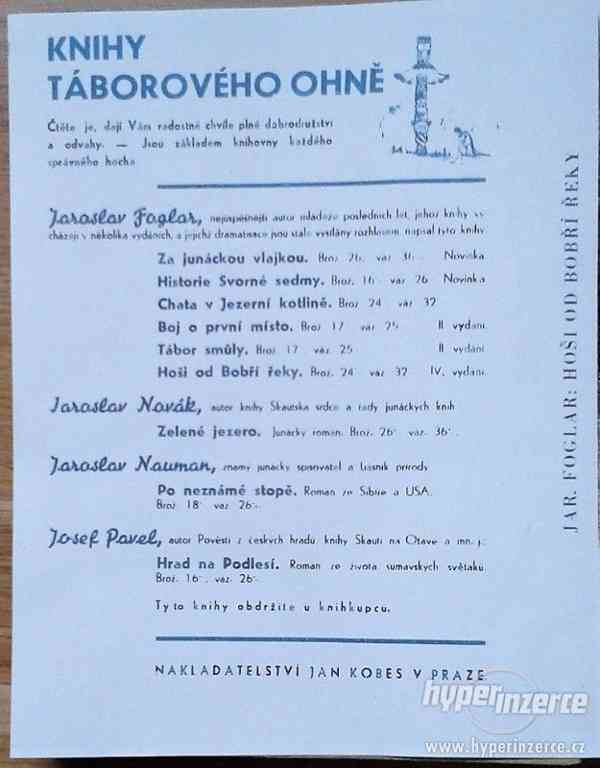 KNIHY
TÁBOROVÉHO OHNĚ
Čtěte je, dají Vám radostné chvíle plné dobrodružství
a odvahy. — Jsou základem knihovny každého
správného hocha
Jaroslav Foglar, nejúspěšnější autor mládeže posledních let, jehož knihy vy
cházejí v několika vydáních, a jejichž dramatisace jsou stále vysílány rozhlasem, napsal tyto knihy
Za junáckou vlajkou. Brož. 26. váz. 36. Novinka
Historie Svorné sedmy. Brož. 16. váz. 26 Novinka
Chata v Jezerní kotlině. Brož 24 váz 32
Boj o první místo. Brož 17 váz 25 II vydání
Tábor smůly. Brož 17 váz 25 II vydání
Hoši od Bobří řeky. Brož. 24 váz 32 IV. vydání
Jaroslav Novák, autor knihy Skautská srdce a řady junáckých knih
Zelené jezero. Junácký román. Brož. 26 váz. 36
Jaroslav Nauman, známý junácký spisovatel a básník přírody
Po neznámé stopě. Román ze Sibiře a USA.
Brož. 18 váz 26
Josef Pavel, autor Pověstí z českých hradů, knihy Skauti na Otavě a mn. j.
Hrad na Podlesí. Román ze života šumavských světáků.
Brož. 16 váz. 26
Tyto knihy obdržíte u knihkupců.
NAKLADATELSTVÍ JAN KOBES V PRAZE
JAR. FOGLAR: HOŠI OD BOBŘÍ ŘEKY
hyperinzerce
www.hyperinzerce.cz